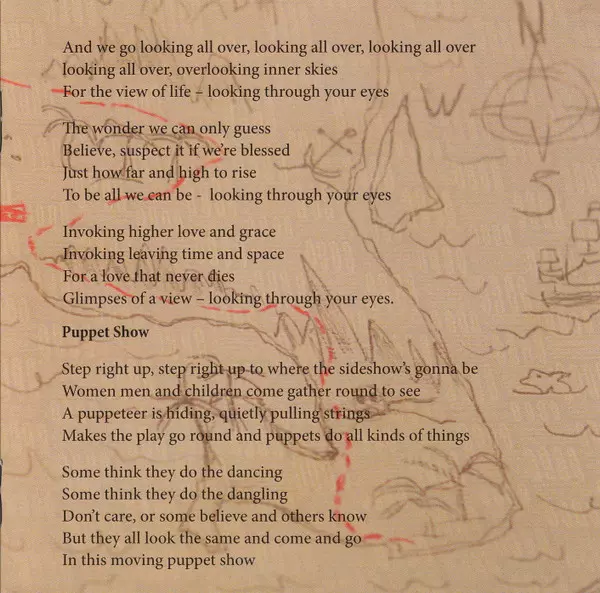 And we go looking all over, looking all over, looking all over
looking all over, overlooking inner skies
For the view of life – looking through your eyes
The wonder we can only guess
Believe, suspect it if we're blessed
Just how far and high to rise
To be all we can be - looking through your eyes
Invoking higher love and grace
Invoking leaving time and space
For a love that never dies
Glimpses of a view – looking through your eyes.
Puppet Show
Step right up, step right up to where the sideshow's gonna be
Women men and children come gather round to see
A puppeteer is hiding, quietly pulling strings
Makes the play go round and puppets do all kinds of things
Some think they do the dancing
Some think they do the dangling
Don't care, or some believe and others know
But they all look the same and come and go
In this moving puppet show
N
W
S